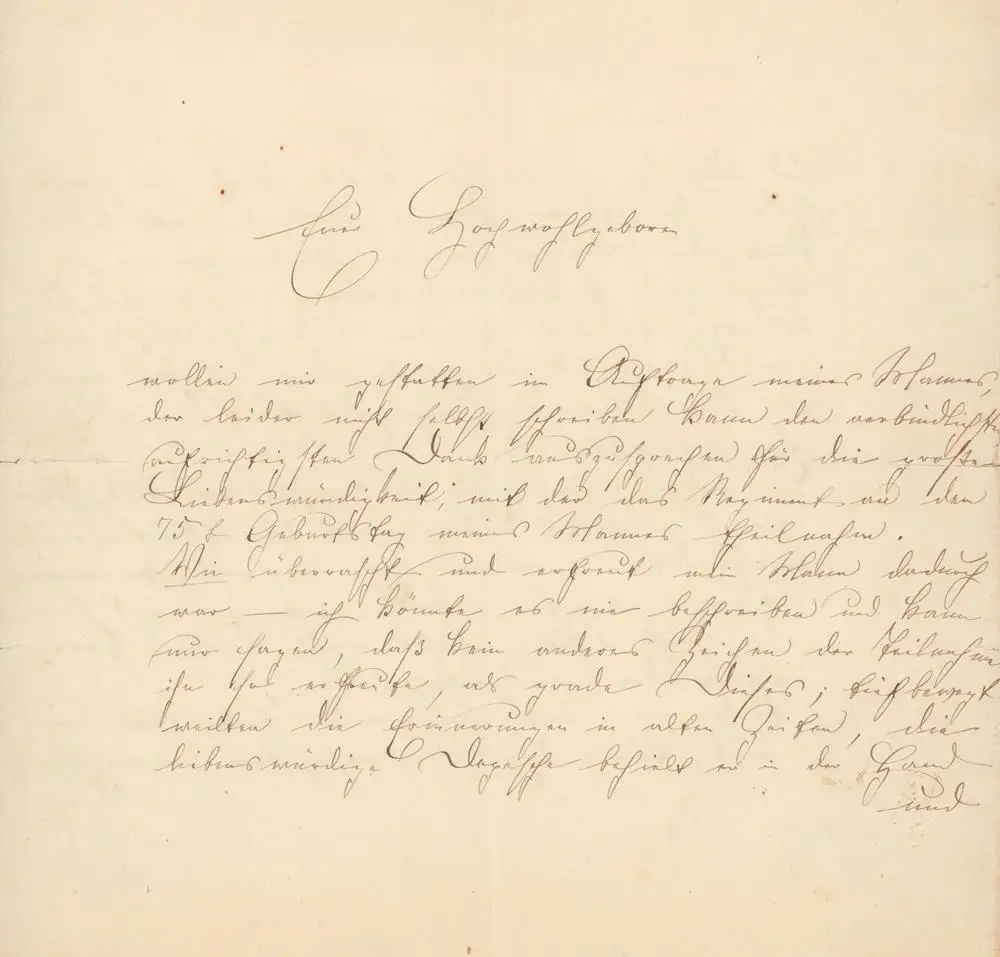 Euer Hochwohlgeboren
wollen mir gestatten im Auftrage meines Mannes,
der leider nicht selbst schreiben kann den verbindlichsten
aufrichtigsten Dank auszusprechen für die große
Liebenswürdigkeit, mit der das Regiment an dem
75 t Geburtstag meines Mannes theilnahm.
Wie überrascht und erfreut mein Mann dadurch
war — ich könnte es nie beschreiben und kann
nur sagen, daß kein anderes Zeichen der Teilnahme
ihn so erfreute, als grade Dieses; tief bewegt
weilten die Erinnerungen in alten Zeiten, die
liebenswürdige Depesche behielt er in der Hand
und